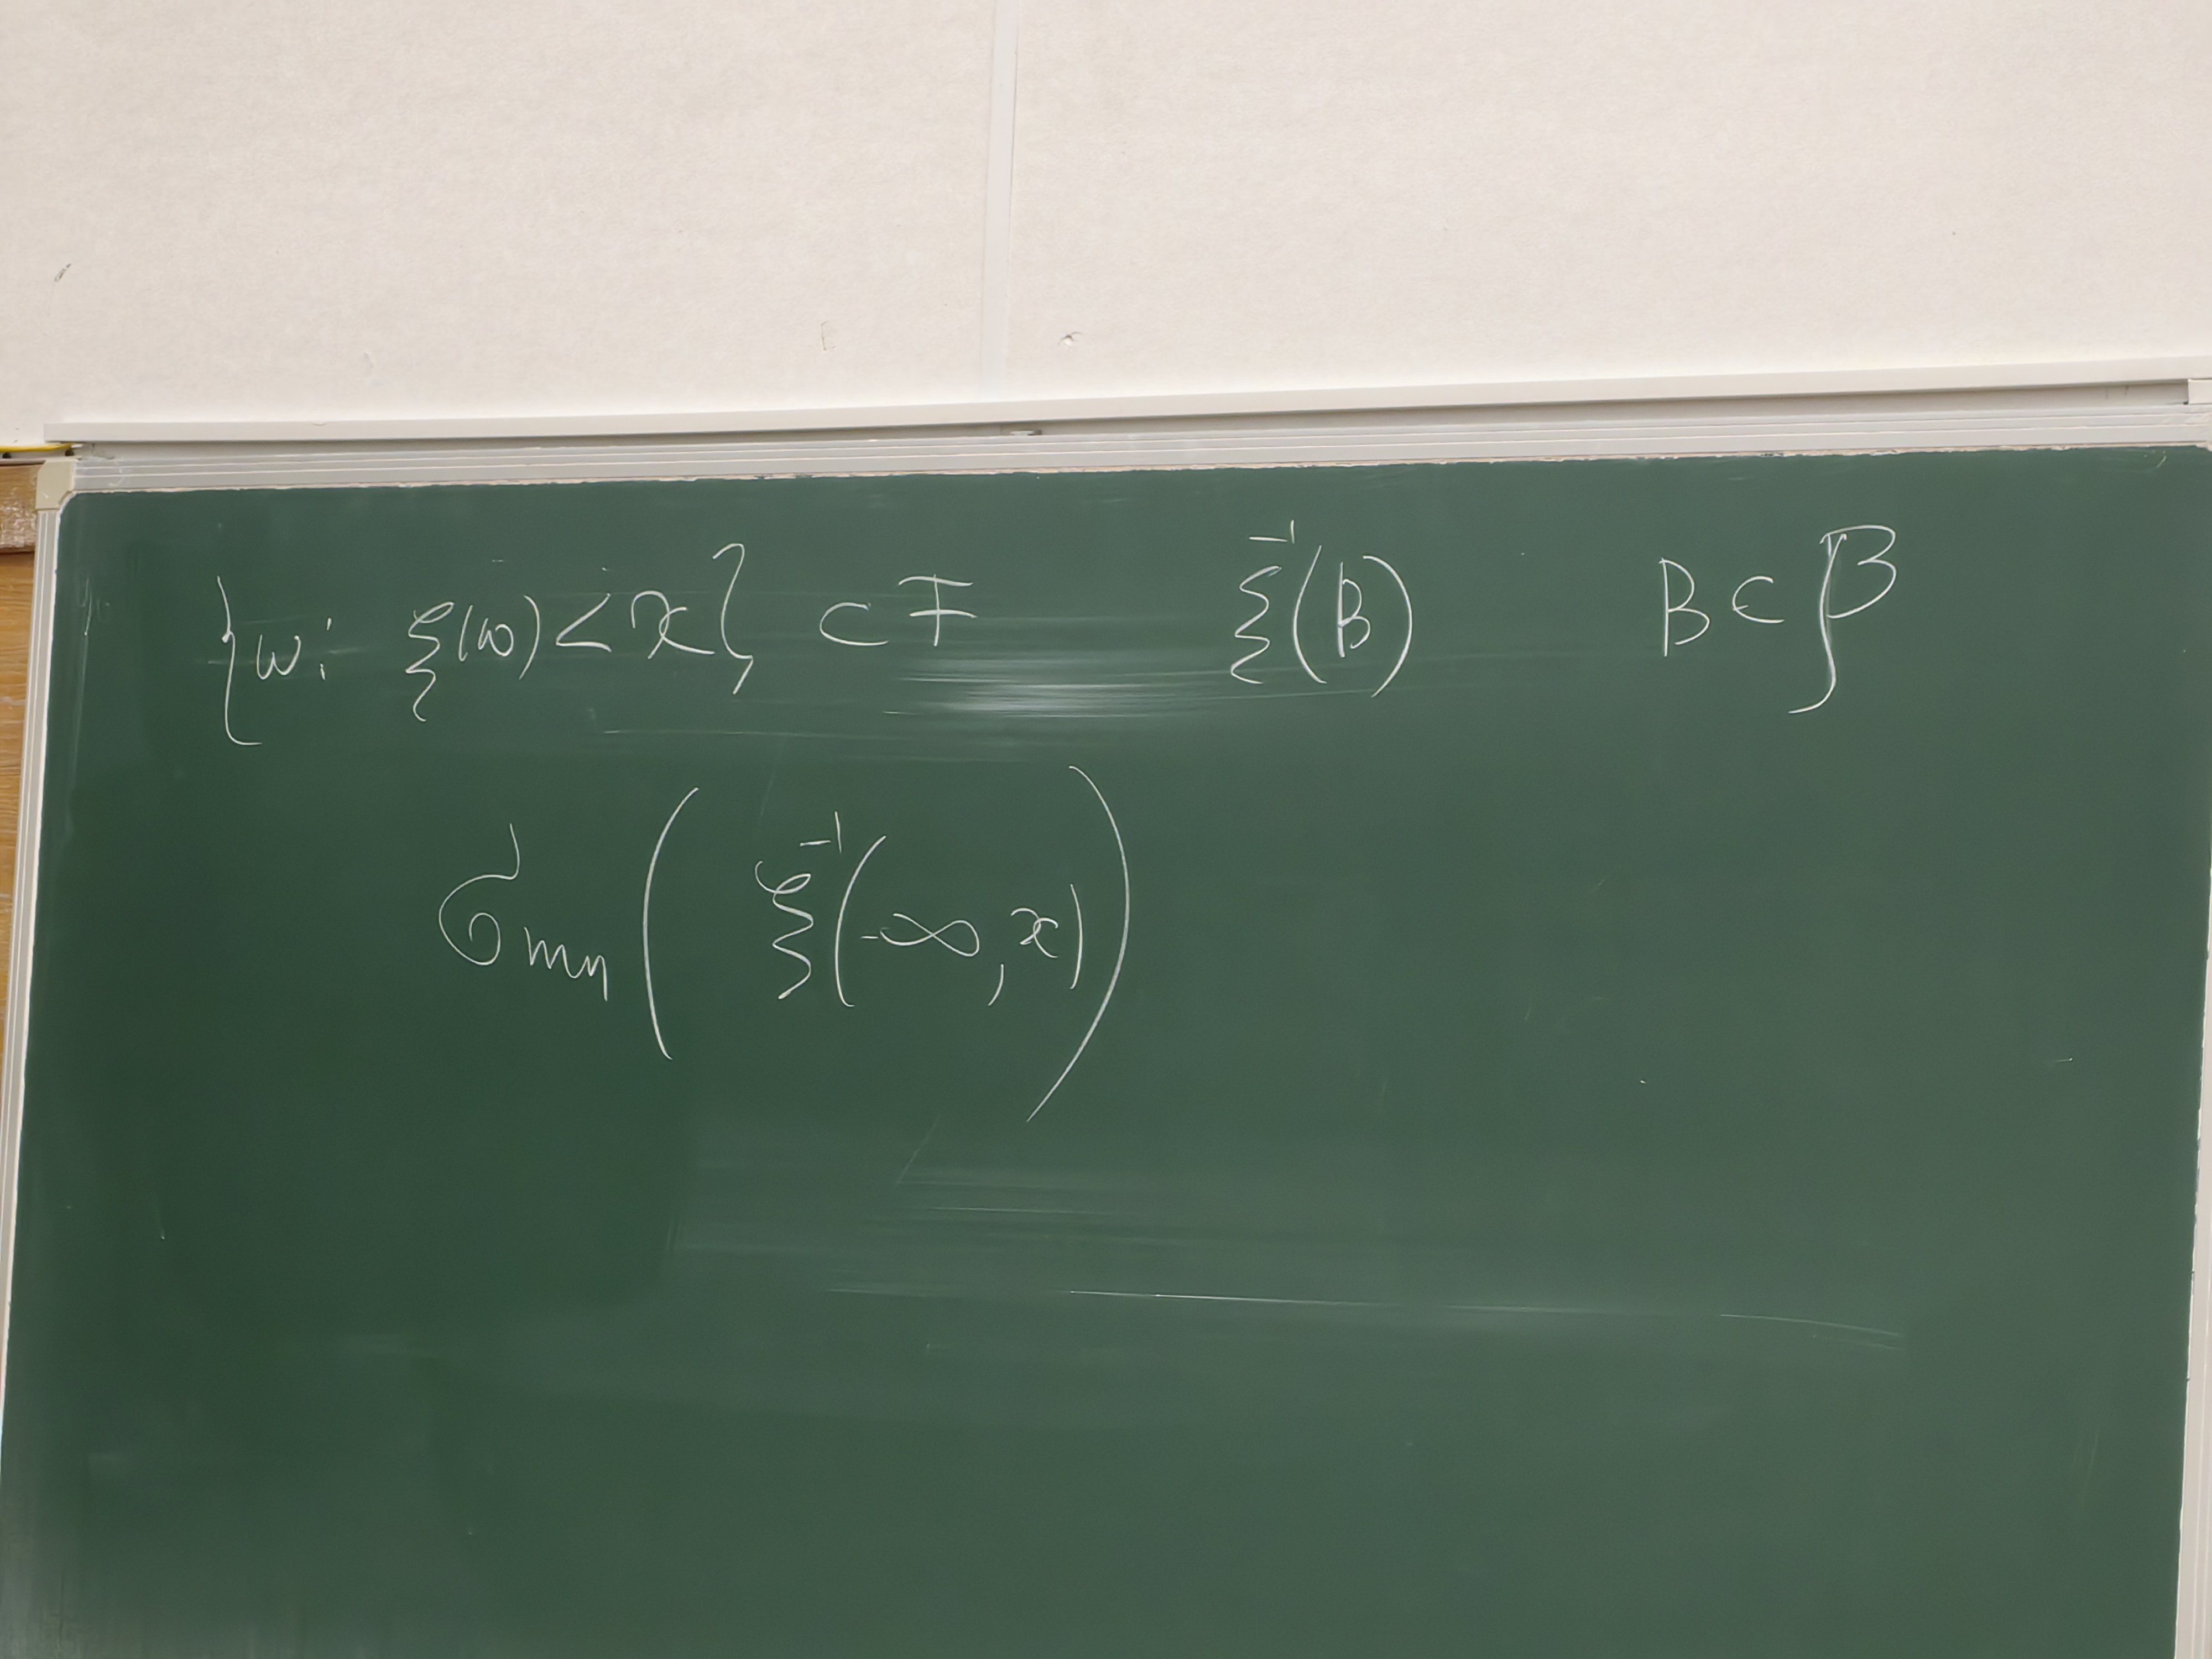 {ω: ξ(ω) < x} ⊂ F ξ⁻¹(B) B ⊂ ℬ
σ_min ( ξ⁻¹(-∞, x) )